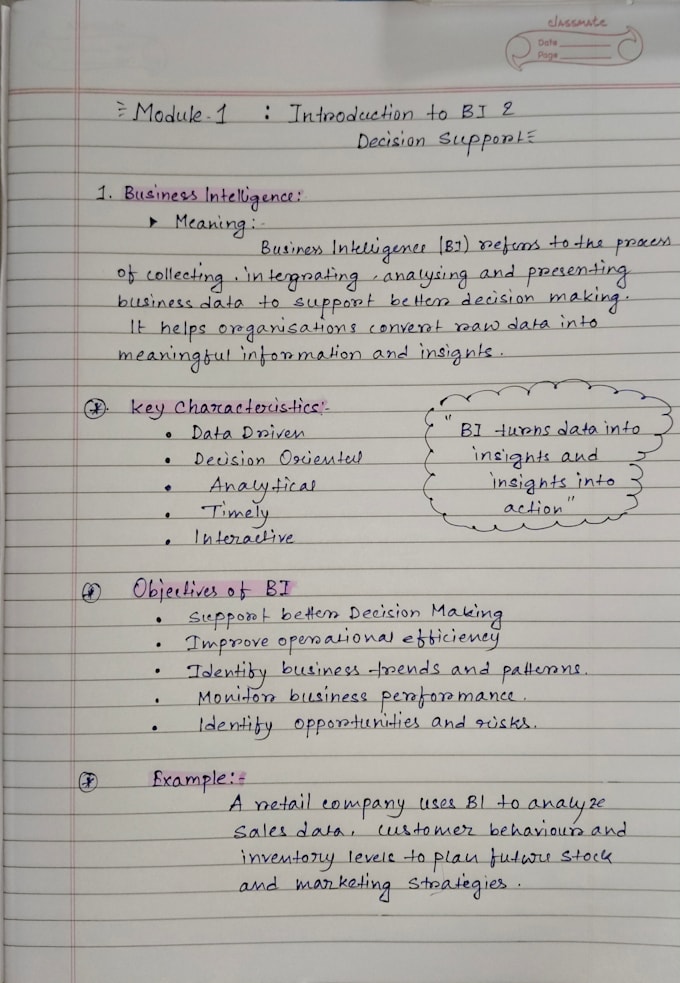 classmate
Date
Page
Module-1 : Introduction to BI 2
Decision Support
1. Business Intelligence:
Meaning:-
Business Intelligence (BI) refers to the process
of collecting, integrating, analysing and presenting
business data to support better decision making.
It helps organisations convert raw data into
meaningful information and insights.
Key Characteristics:-
• Data Driven
• Decision Oriented
• Analytical
• Timely
• Interactive
"BI turns data into
insights and
insights into
action"
Objectives of BI
• Support better Decision Making
• Improve operational efficiency
• Identify business trends and patterns.
• Monitor business performance.
• Identify opportunities and risks.
Example:-
A retail company uses BI to analyze
sales data, customer behaviour and
inventory levels to plan future stock
and marketing strategies.